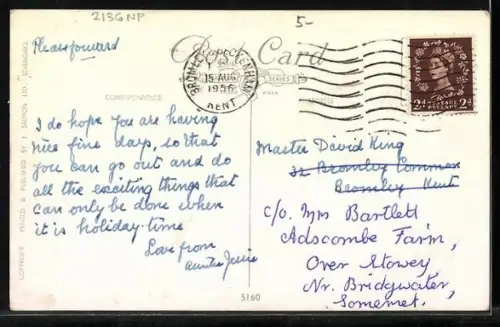 213GNP
5-
Please forward
Post Card
BROMLEY & BECKENHAM
15 AUG
1956
KENT
SERIES
CORRESPONDENCE
ADDRESS
POSTAGE REVENUE
2d 2d
COPYRIGHT PRINTED & PUBLISHED BY J. SALMON LTD. SEVENOAKS
I do hope you are having
nice fine days, so that
you can go out and do
all the exciting things that
can only be done when
it is holiday-time
Love from
Auntie Jessie
Master David King
32 Bromley Common
Bromley Kent
c/o. Mrs Bartlett
Adscombe Farm,
Over Stowey
Nr. Bridgwater,
Somerset.
5160